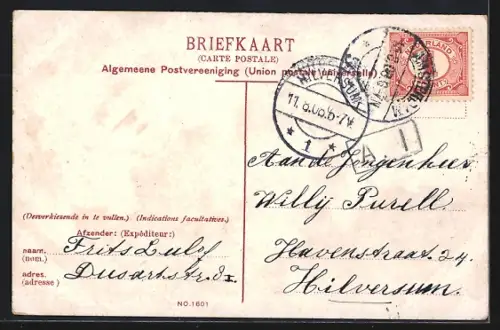 BRIEFKAART
(CARTE POSTALE)
Algemeene Postvereeniging (Union postale universelle)
NEDERLAND
HILVERSUM
11.8.06.6-7V
* 1 *
A 1
Aan de Jongenheer
Willy Purell.
Havenstraat 24.
Hilversum.
(Desverkiesende in te vullen.) (Indications facultatives.)
Afzender: (Expéditeur:)
naam. Frits Lulof
(nom.)
adres. Dusartstr.
(adresse)
NO.1601